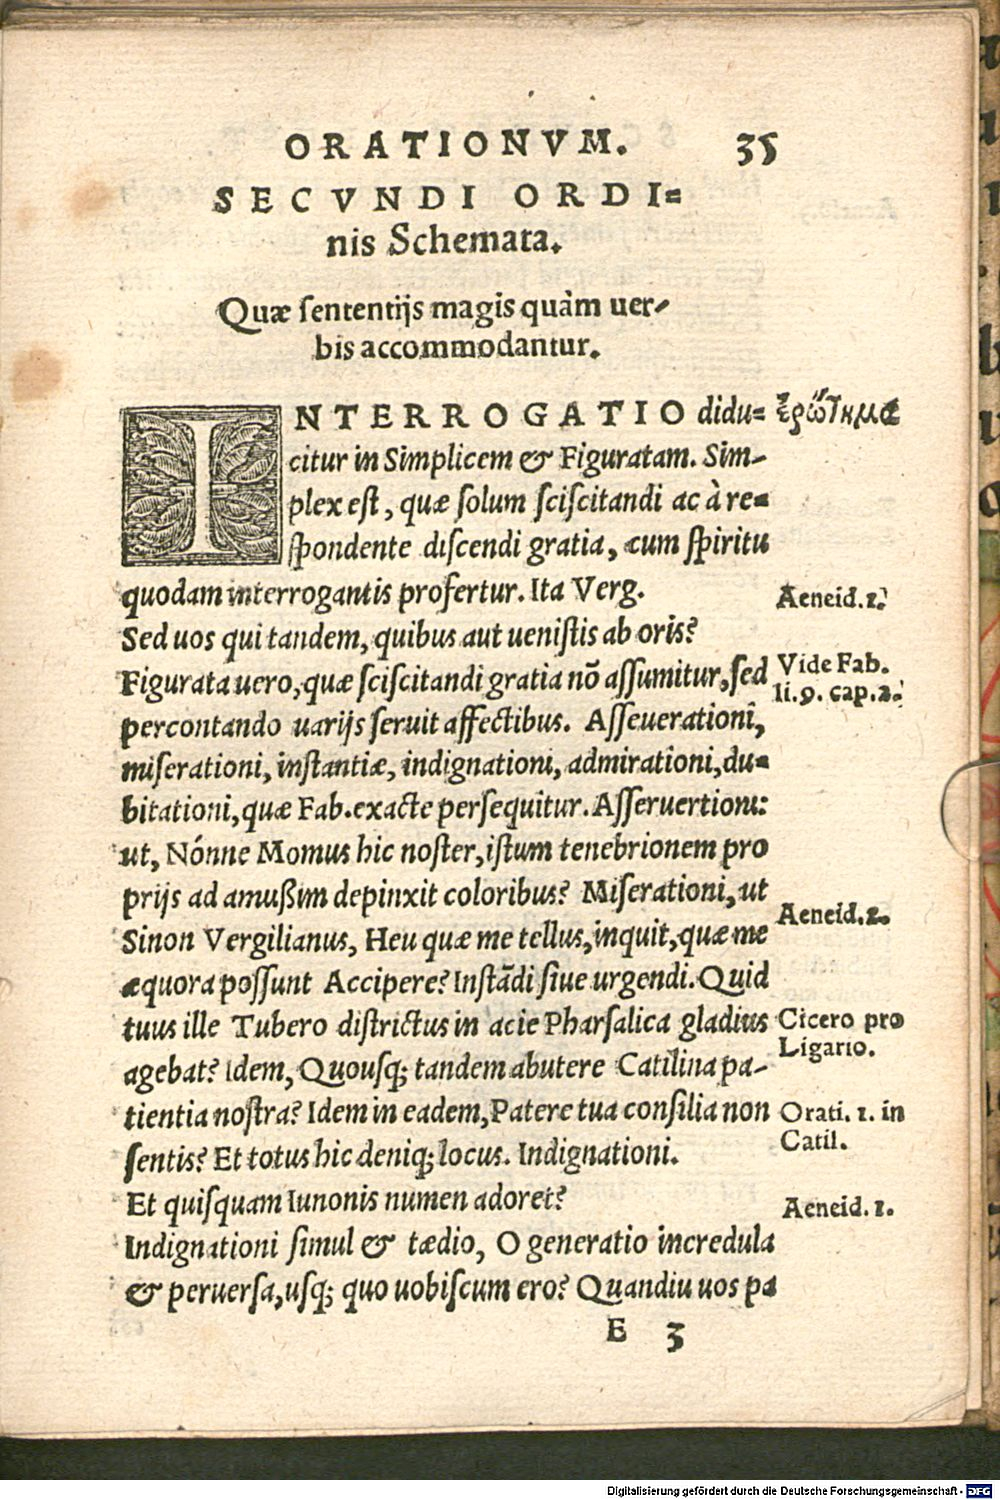 ORATIONVM. 35
SECVNDI ORDI=
nis Schemata.
Quæ sententijs magis quàm uer-
bis accommodantur.
INTERROGATIO didu= ἐρώτημα
citur in Simplicem & Figuratam. Sim-
plex est, quæ solum sciscitandi ac à re=
spondente discendi gratia, cum spiritu
quodam interrogantis profertur. Ita Verg. Aeneid. 1.
Sed uos qui tandem, quibus aut uenistis ab oris?
Figurata uero, quæ sciscitandi gratia nõ assumitur, sed Vide Fab.
li. 9. cap. 2.
percontando uarijs seruit affectibus. Asseuerationi,
miserationi, instantiæ, indignationi, admirationi, du=
bitationi, quæ Fab. exacte persequitur. Asseruertioni:
ut, Nónne Momus hic noster, istum tenebrionem pro
prijs ad amußim depinxit coloribus? Miserationi, ut
Sinon Vergilianus, Heu quæ me tellus, inquit, quæ me Aeneid. 2.
æquora possunt Accipere? Instãdi siue urgendi. Quid
tuus ille Tubero districtus in acie Pharsalica gladius Cicero pro
Ligario.
agebat? Idem, Quousq; tandem abutere Catilina pa-
tientia nostra? Idem in eadem, Patere tua consilia non Orati. 1. in
Catil.
sentis? Et totus hic deniq; locus. Indignationi.
Et quisquam Iunonis numen adoret? Aeneid. 1.
Indignationi simul & tædio, O generatio incredula
& peruersa, usq; quo uobiscum ero? Quandiu uos pa
E 3
Digitalisierung gefördert durch die Deutsche Forschungsgemeinschaft - DFG